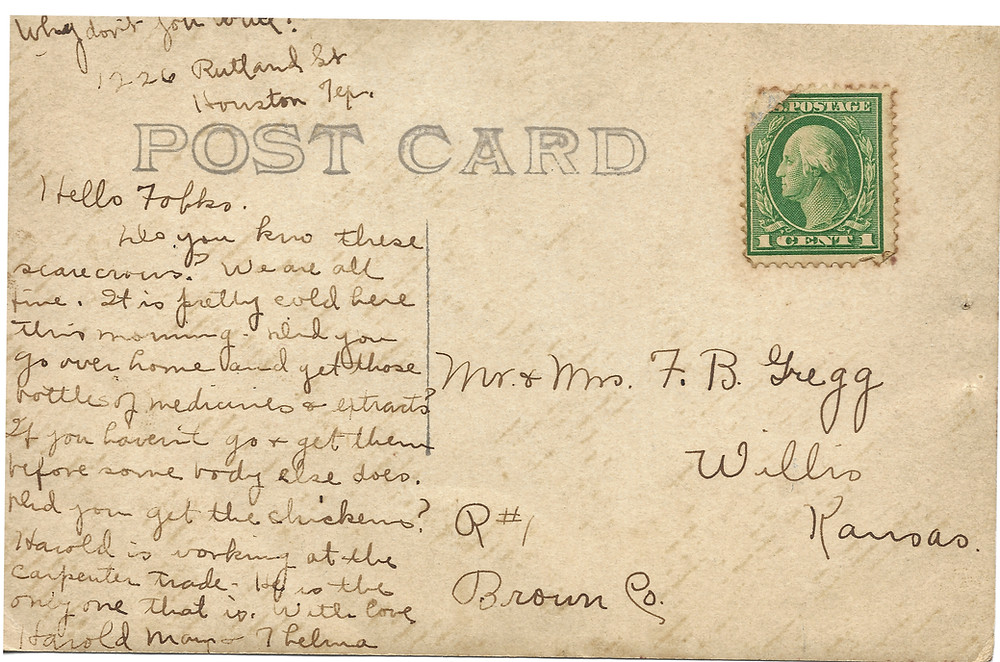 Why don't you write?
1226 Rutland St
Houston Tex.
POST CARD
U.S. POSTAGE
1 CENT 1
Hello Fofks.
Do you kno these
scarecrows? We are all
fine. It is pretty cold here
this morning. Did you
go over home and get those
bottles of medicines & extracts?
If you havent go & get them
before some body else does.
Did you get the chickens?
Harold is working at the
carpenter trade - He is the
only one that is. With love
Harold May & Thelma
Mr. & Mrs. F. B. Gregg
Willis
Kansas.
R#1
Brown Co.